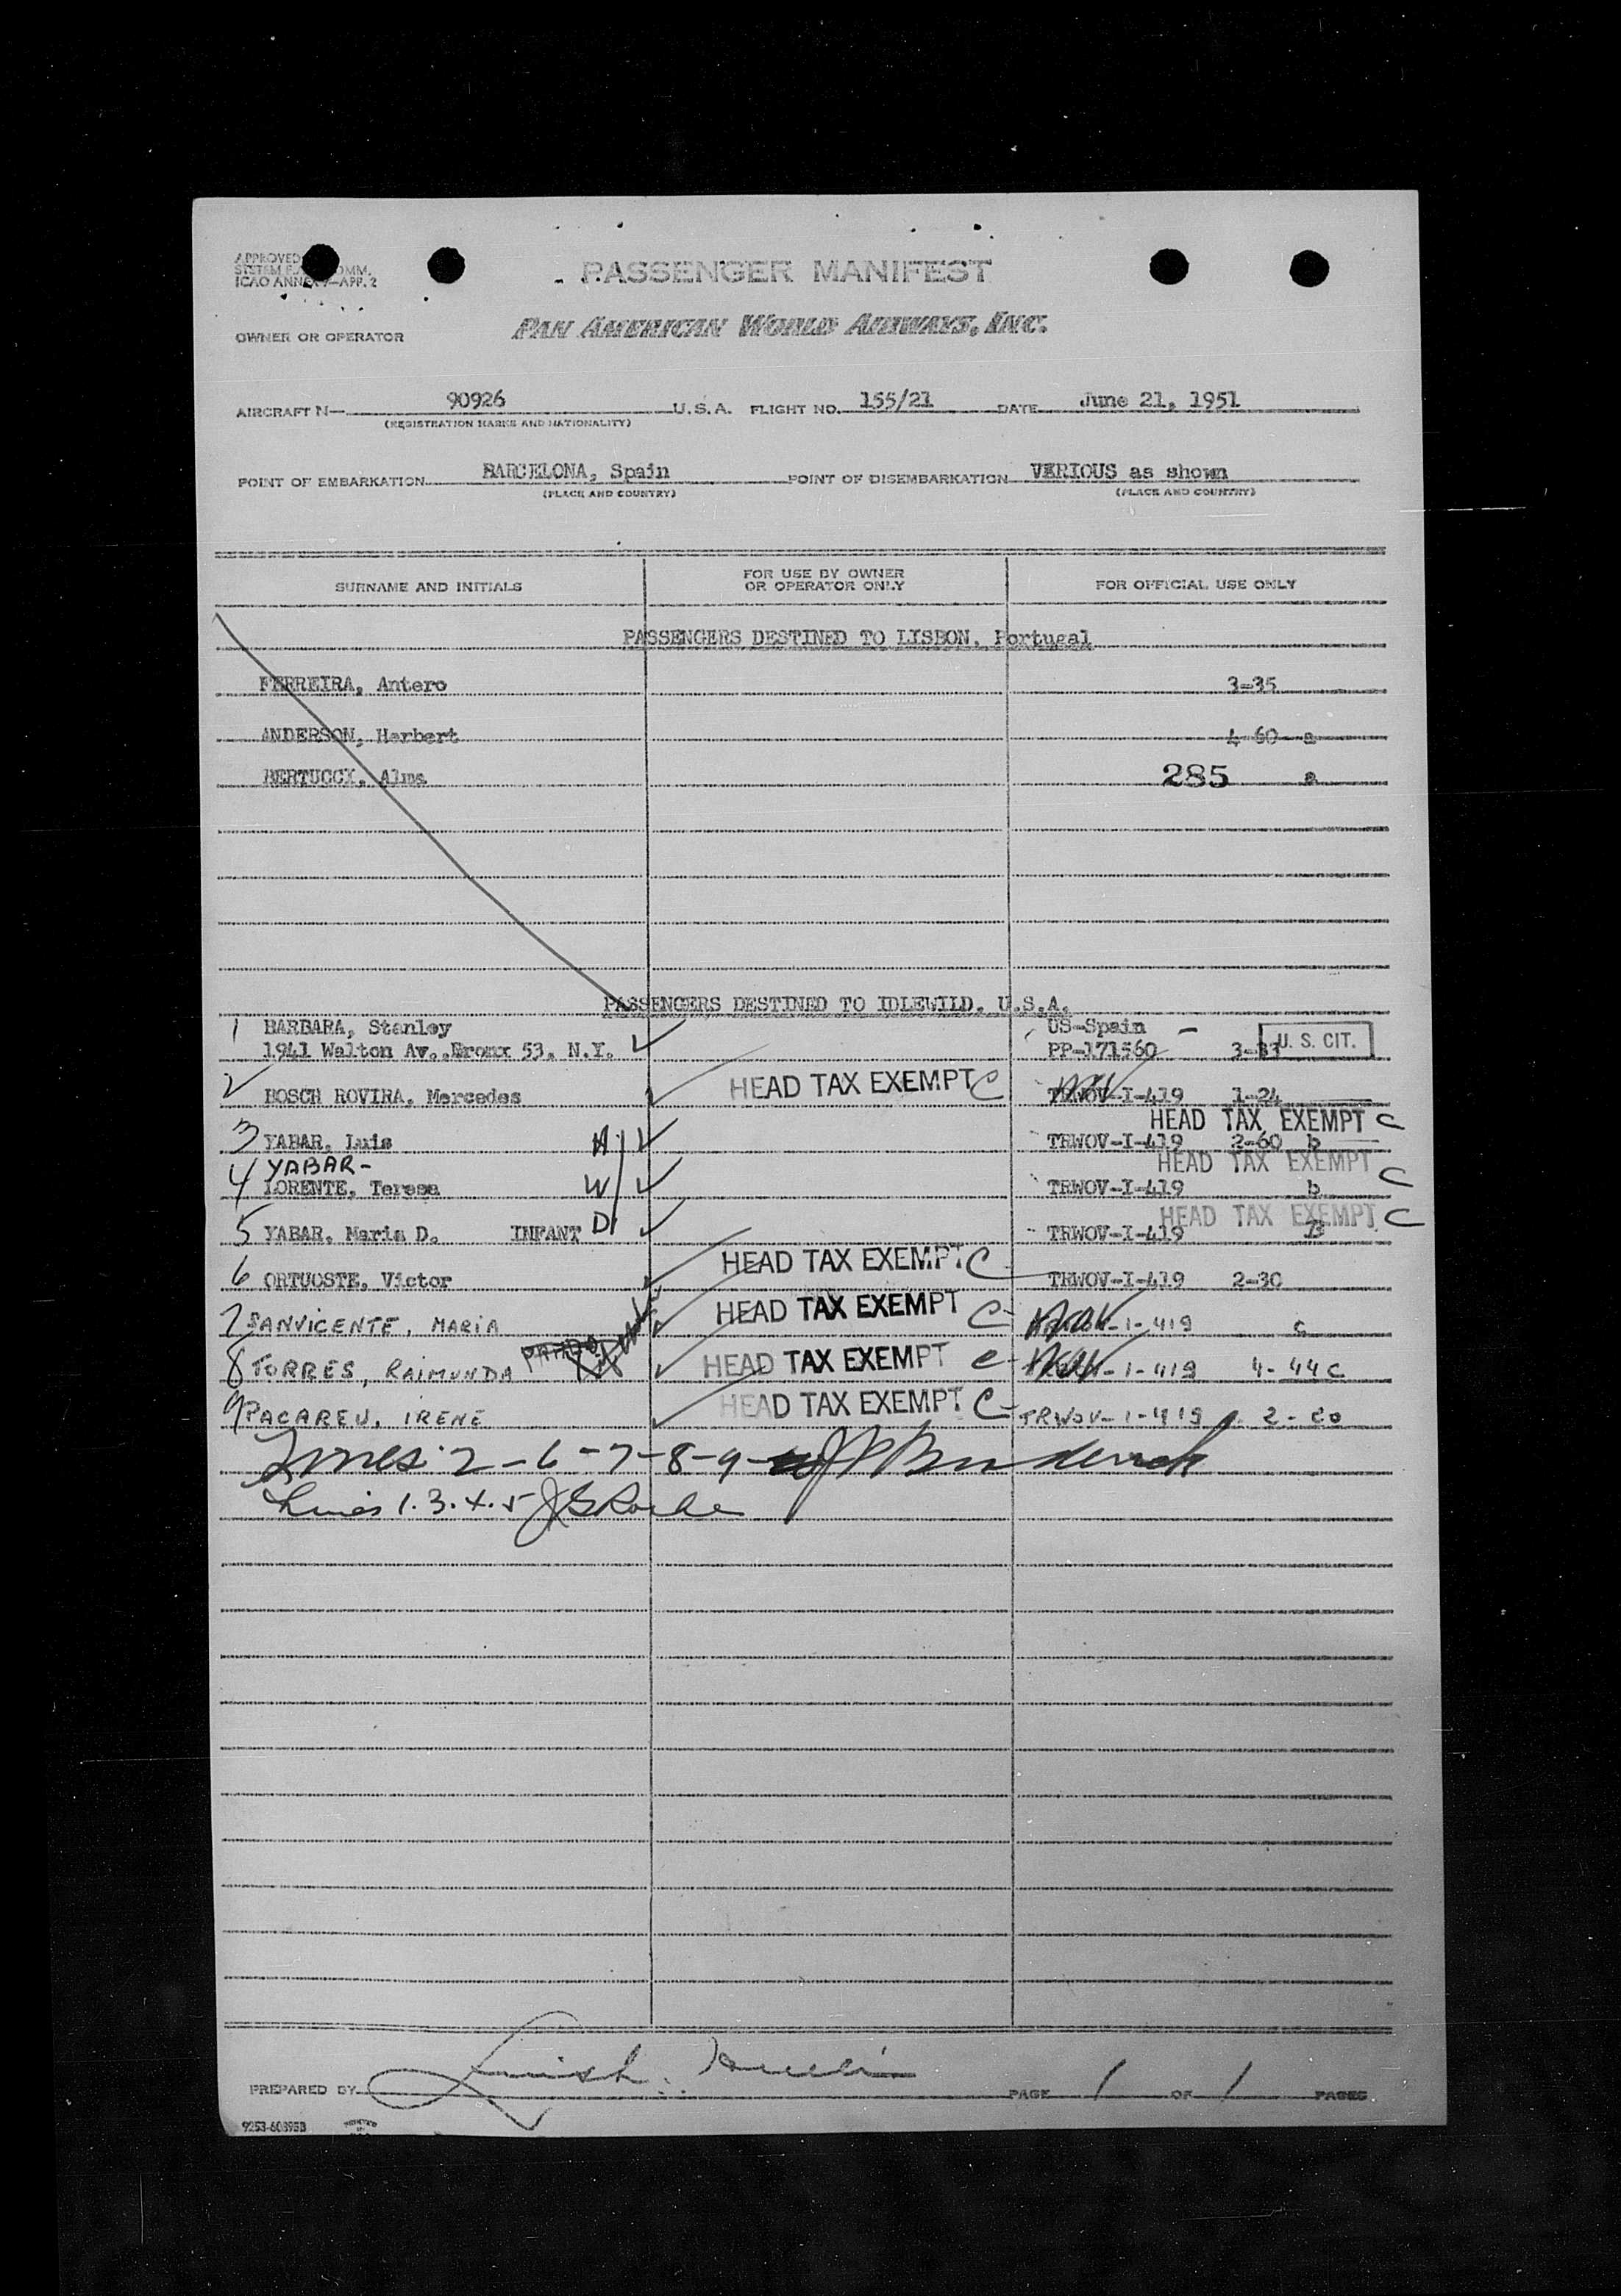 APPROVED
ICAO ANNEX 9—APP. 2
PASSENGER MANIFEST
OWNER OR OPERATOR PAN AMERICAN WORLD AIRWAYS, INC.
AIRCRAFT N— 90926 U.S.A. FLIGHT NO. 155/21 DATE June 21, 1951
(REGISTRATION MARKS AND NATIONALITY)
POINT OF EMBARKATION BARCELONA, Spain POINT OF DISEMBARKATION VERIOUS as shown
(PLACE AND COUNTRY) (PLACE AND COUNTRY)
SURNAME AND INITIALS FOR USE BY OWNER OR OPERATOR ONLY FOR OFFICIAL USE ONLY
PASSENGERS DESTINED TO LISBON, Portugal
FERREIRA, Antero 3-35
ANDERSON, Herbert 4-60 a
BERTUCCI, Alma 285 a
PASSENGERS DESTINED TO IDLEWILD, U.S.A.
1 BARBARA, Stanley US-Spain —
1941 Walton Av., Bronx 53, N.Y. PP-171560 3-33 U. S. CIT.
2 BOSCH ROVIRA, Mercedes HEAD TAX EXEMPT C TRWOV-I-419 1-24
HEAD TAX EXEMPT C
3 YABAR, Luis H TRWOV-I-419 2-60 b
4 YABAR- HEAD TAX EXEMPT C
LORENTE, Teresa W TRWOV-I-419 b
HEAD TAX EXEMPT C
5 YABAR, Maria D. INFANT D TRWOV-I-419 B
6 ORTUOSTE, Victor HEAD TAX EXEMPT C TRWOV-I-419 2-30
7 SANVICENTE, MARIA HEAD TAX EXEMPT C -1-419 c
8 TORRES, RAIMUNDA HEAD TAX EXEMPT c -1-419 4-44 C
9 PACAREU, IRENE HEAD TAX EXEMPT C TRWOV-1-419 2-20
Lines 2-6-7-8-9
Lines 1.3.4.5 JGRoche
PREPARED BY PAGE 1 OF 1 PAGES
9253-60895B